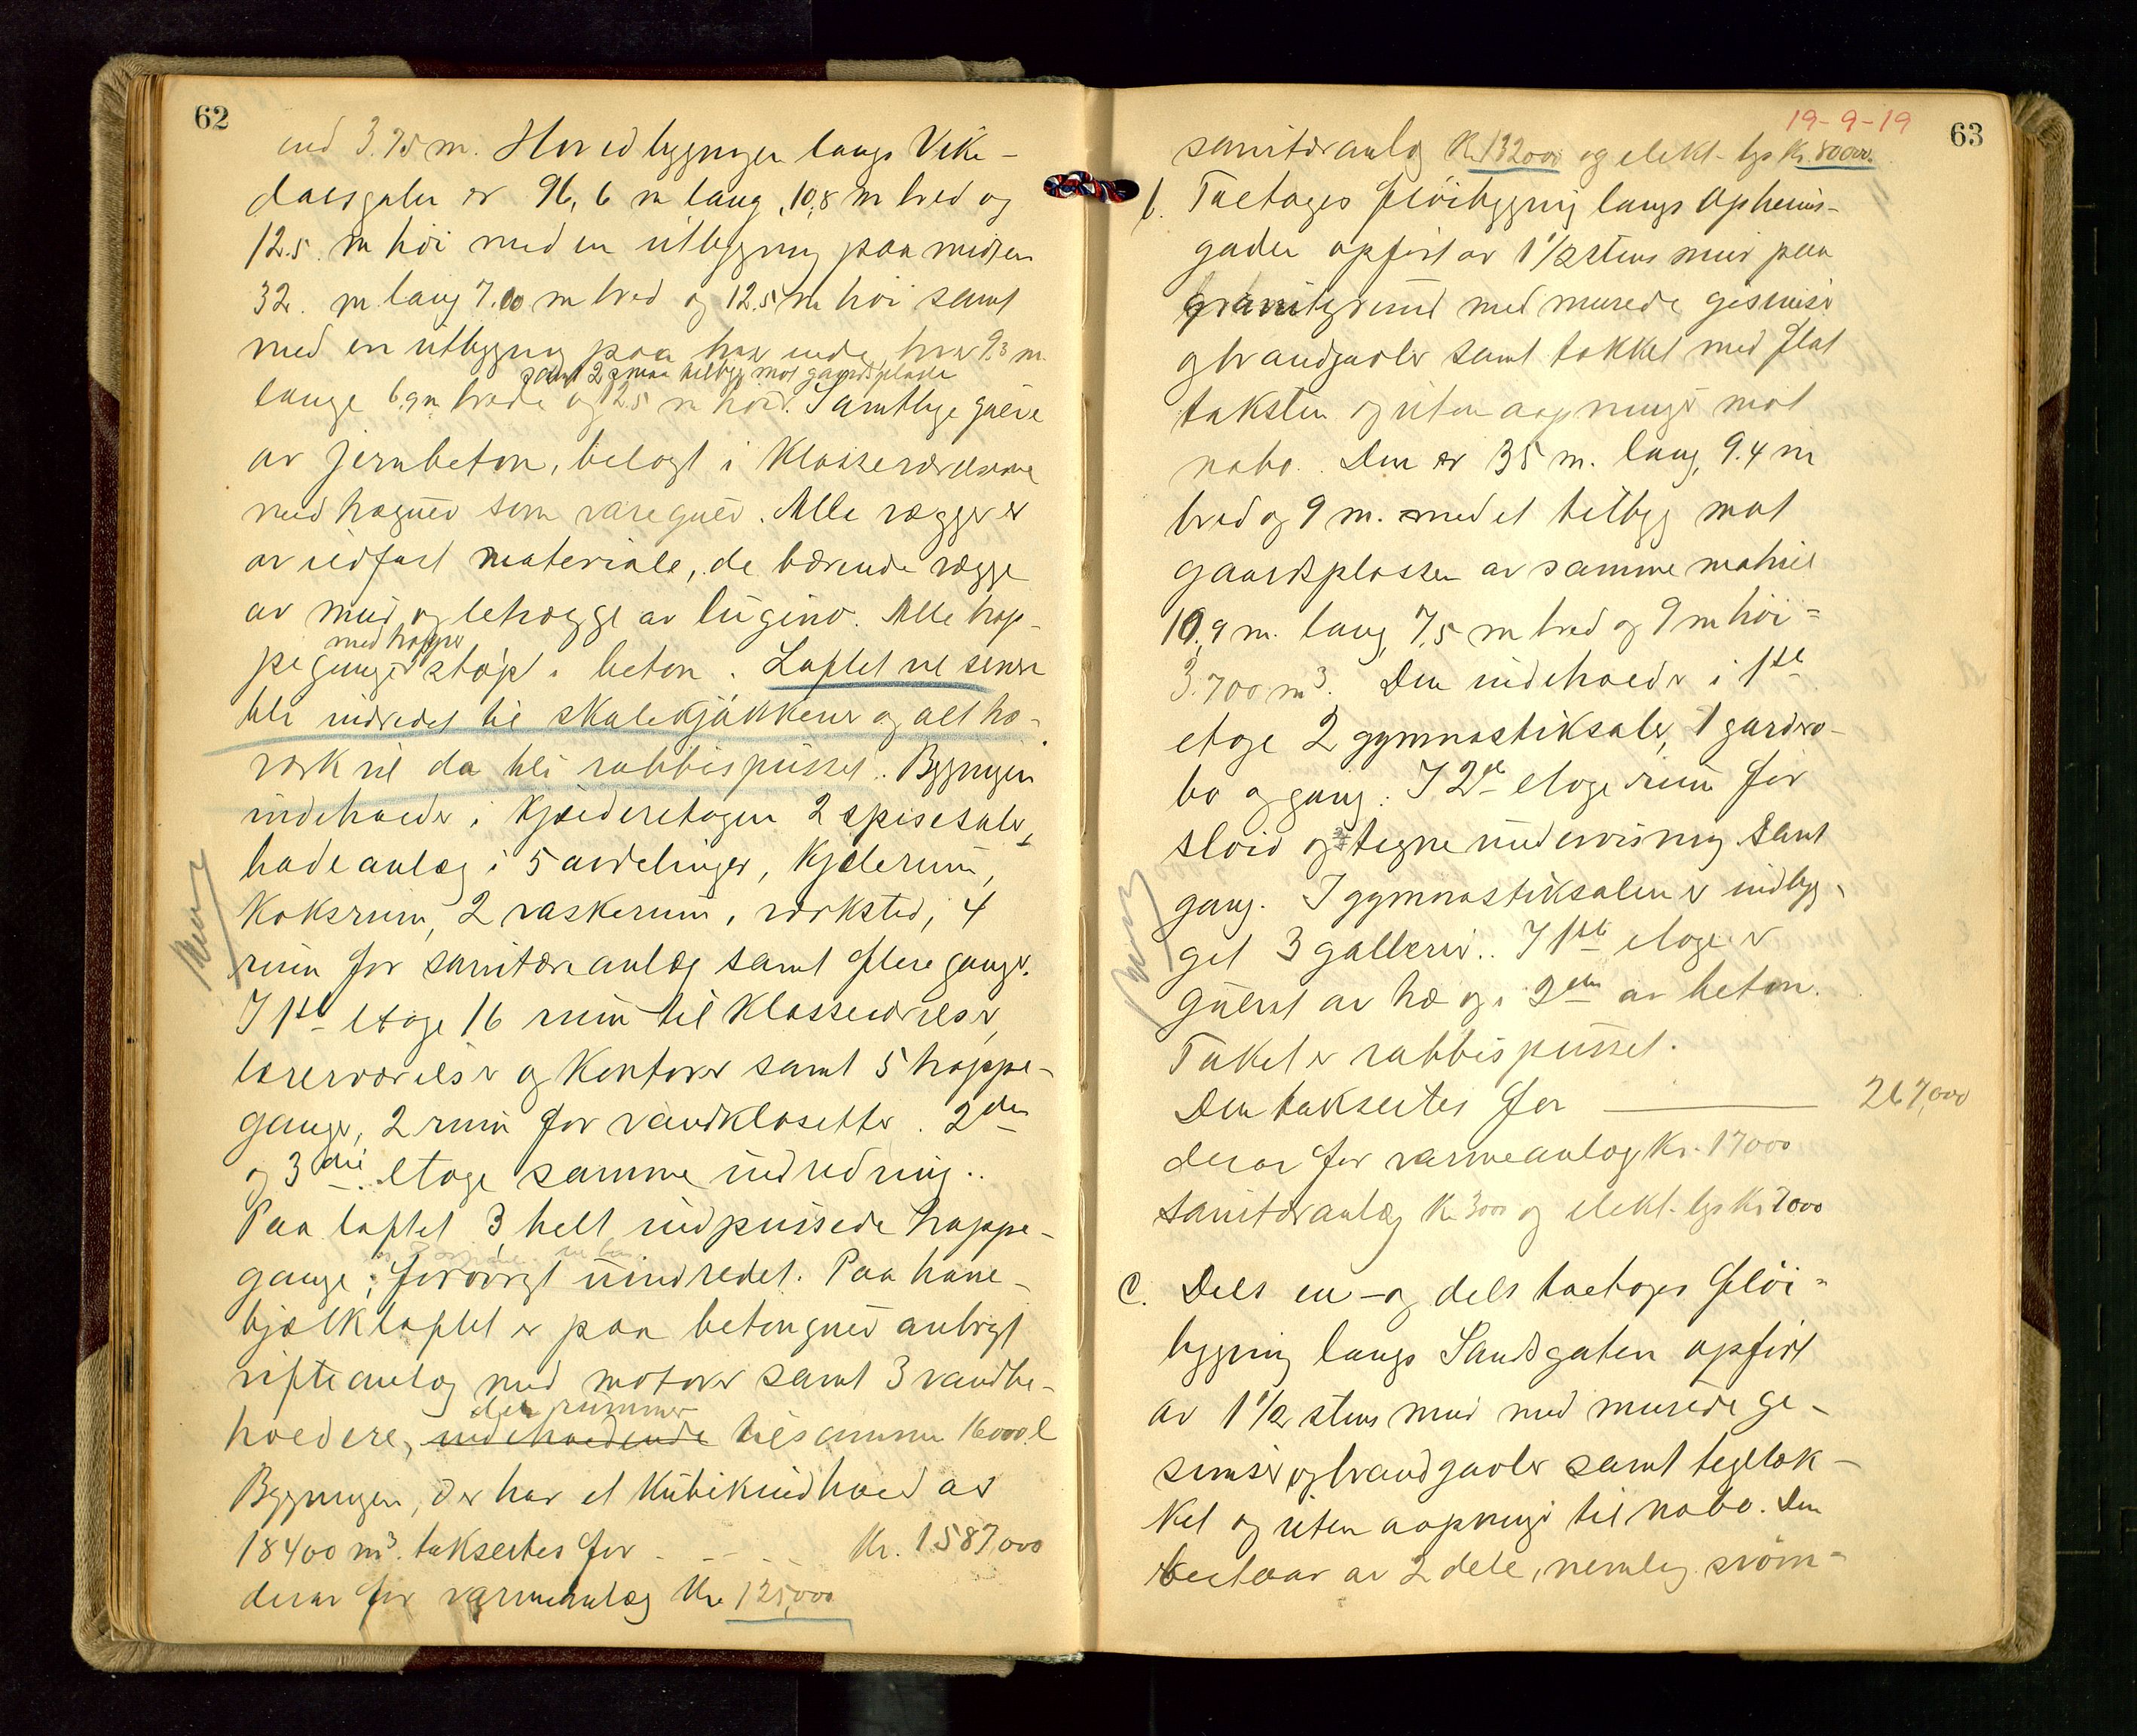 62
end 3.75 m. Hovedbygningen langs Vike-
dalsgaten er 96,6 m lang, 10,8 m bred og
12.5. m höi med en utbygning paa midten
32. m. lang 7.00 m bred og 12.5 m höi samt
med en utbygning paa hver ende, hver 9.3 m
samt 2 smaa tilbygg mot gaardsplassen
lange 6.9 m brede og 12.5 m höie. Samtlige gulve
av jernbeton, belagt i Klasseværelserne
med trægulv som varegulv. Alle vægger er
av ildfast materiale, de bærende vægge
av mur og letvægge av lugino. Alle trap-
med trapper
peganger støpt i beton. Loftet vil senere
bli indredet til skolekjøkkener og alt træ-
verk vil da bli rabbitspusset. Bygningen
indeholder i Kjelderetagen 2 spisesaler,
badeanlæg i 5 avdelinger, Kjelerum,
Koksrum, 2 vaskerum, verksted, 4
rum for sanitæranlæg samt flere ganger.
I 1ste etage 16 rum til Klasseværelser,
lærerværelser og Kontorer samt 5 trappe-
ganger, 2 rum for vandklosetter. 2den
og 3die etage samme indredning.
Paa loftet 3 helt indpussede trappe-
gange; forövrigt uindredet. Paa hane-
bjelkeloftet er paa betongulv anbragt
vifteanlæg med motorer samt 3 vandbe-
der rummer
holdere, indeholdende tilsammen 16000 l
Bygningen, der har et Kubikindhold av
18400 m³. taksertes for - - - Kr. 1587000
derav for varmeanlæg Kr. 125,000
19-9-19
63
sanitæranlæg Kr. 132000 og elekt. lys Kr. 80000.
b. Toetages flöibygning langs Opheims-
gaden opført av 1 1/2 stens mur paa
granitgrund med murede gesimser
og brandgavler samt tækket med flat
taksten og uten aapninger mot
nabo. Den er 35 m. lang, 9.4 m
bred og 9 m. med et tilbygg mot
gaardsplassen av samme materiel
10,9 m. lang, 7,5 m bred og 9 m höi =
3.700 m³. Den indeholder i 1ste
etage 2 gymnastiksaler, 1 gardero-
be og gang. I 2den etage rum for
slöid og tegneundervisning samt
gang. I gymnastiksalen er indbyg-
get 3 gallerier. I 1ste etage er
gulvet av træ og i 2den av beton.
Taket er rabbitspusset.
Den taksertes for 267,000
derav for varmeanlæg Kr. 17000
sanitæranlæg Kr. 300 og elekt. lys Kr 7000
C. Dels en- og dels toetages flöi-
bygning langs Sandsgaten opført
av 1 1/2 stens mur med murede ge-
simser og brandgavler samt tegltæk-
ket og uten aapninger til nabo. Den
bestaar av 2 dele, nemlig svöm-